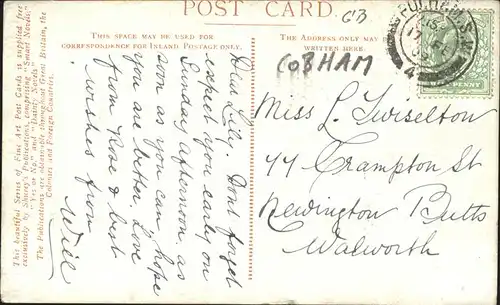 POST CARD
GB
THIS SPACE MAY BE USED FOR
CORRESPONDENCE FOR INLAND POSTAGE ONLY.
THE ADDRESS ONLY MAY BE
WRITTEN HERE.
COBHAM
FULHAM. S.W
PENNY
Dear Lily. Dont forget
expect you early on
Sunday afternoon, as
soon as you can, hope
you are better. Love
from Rose & best
wishes from
Will
Miss L. Twiselton
44 Crampton St
Newington Butts
Walworth
This beautiful Series of Fine Art Post Cards is supplied free
exclusively by Shurey's Publications, comprising "Smart Novels,"
"Yes or No," and "Dainty Novels."
The Publications are obtainable throughout Great Britain, the
Colonies and Foreign Countries.